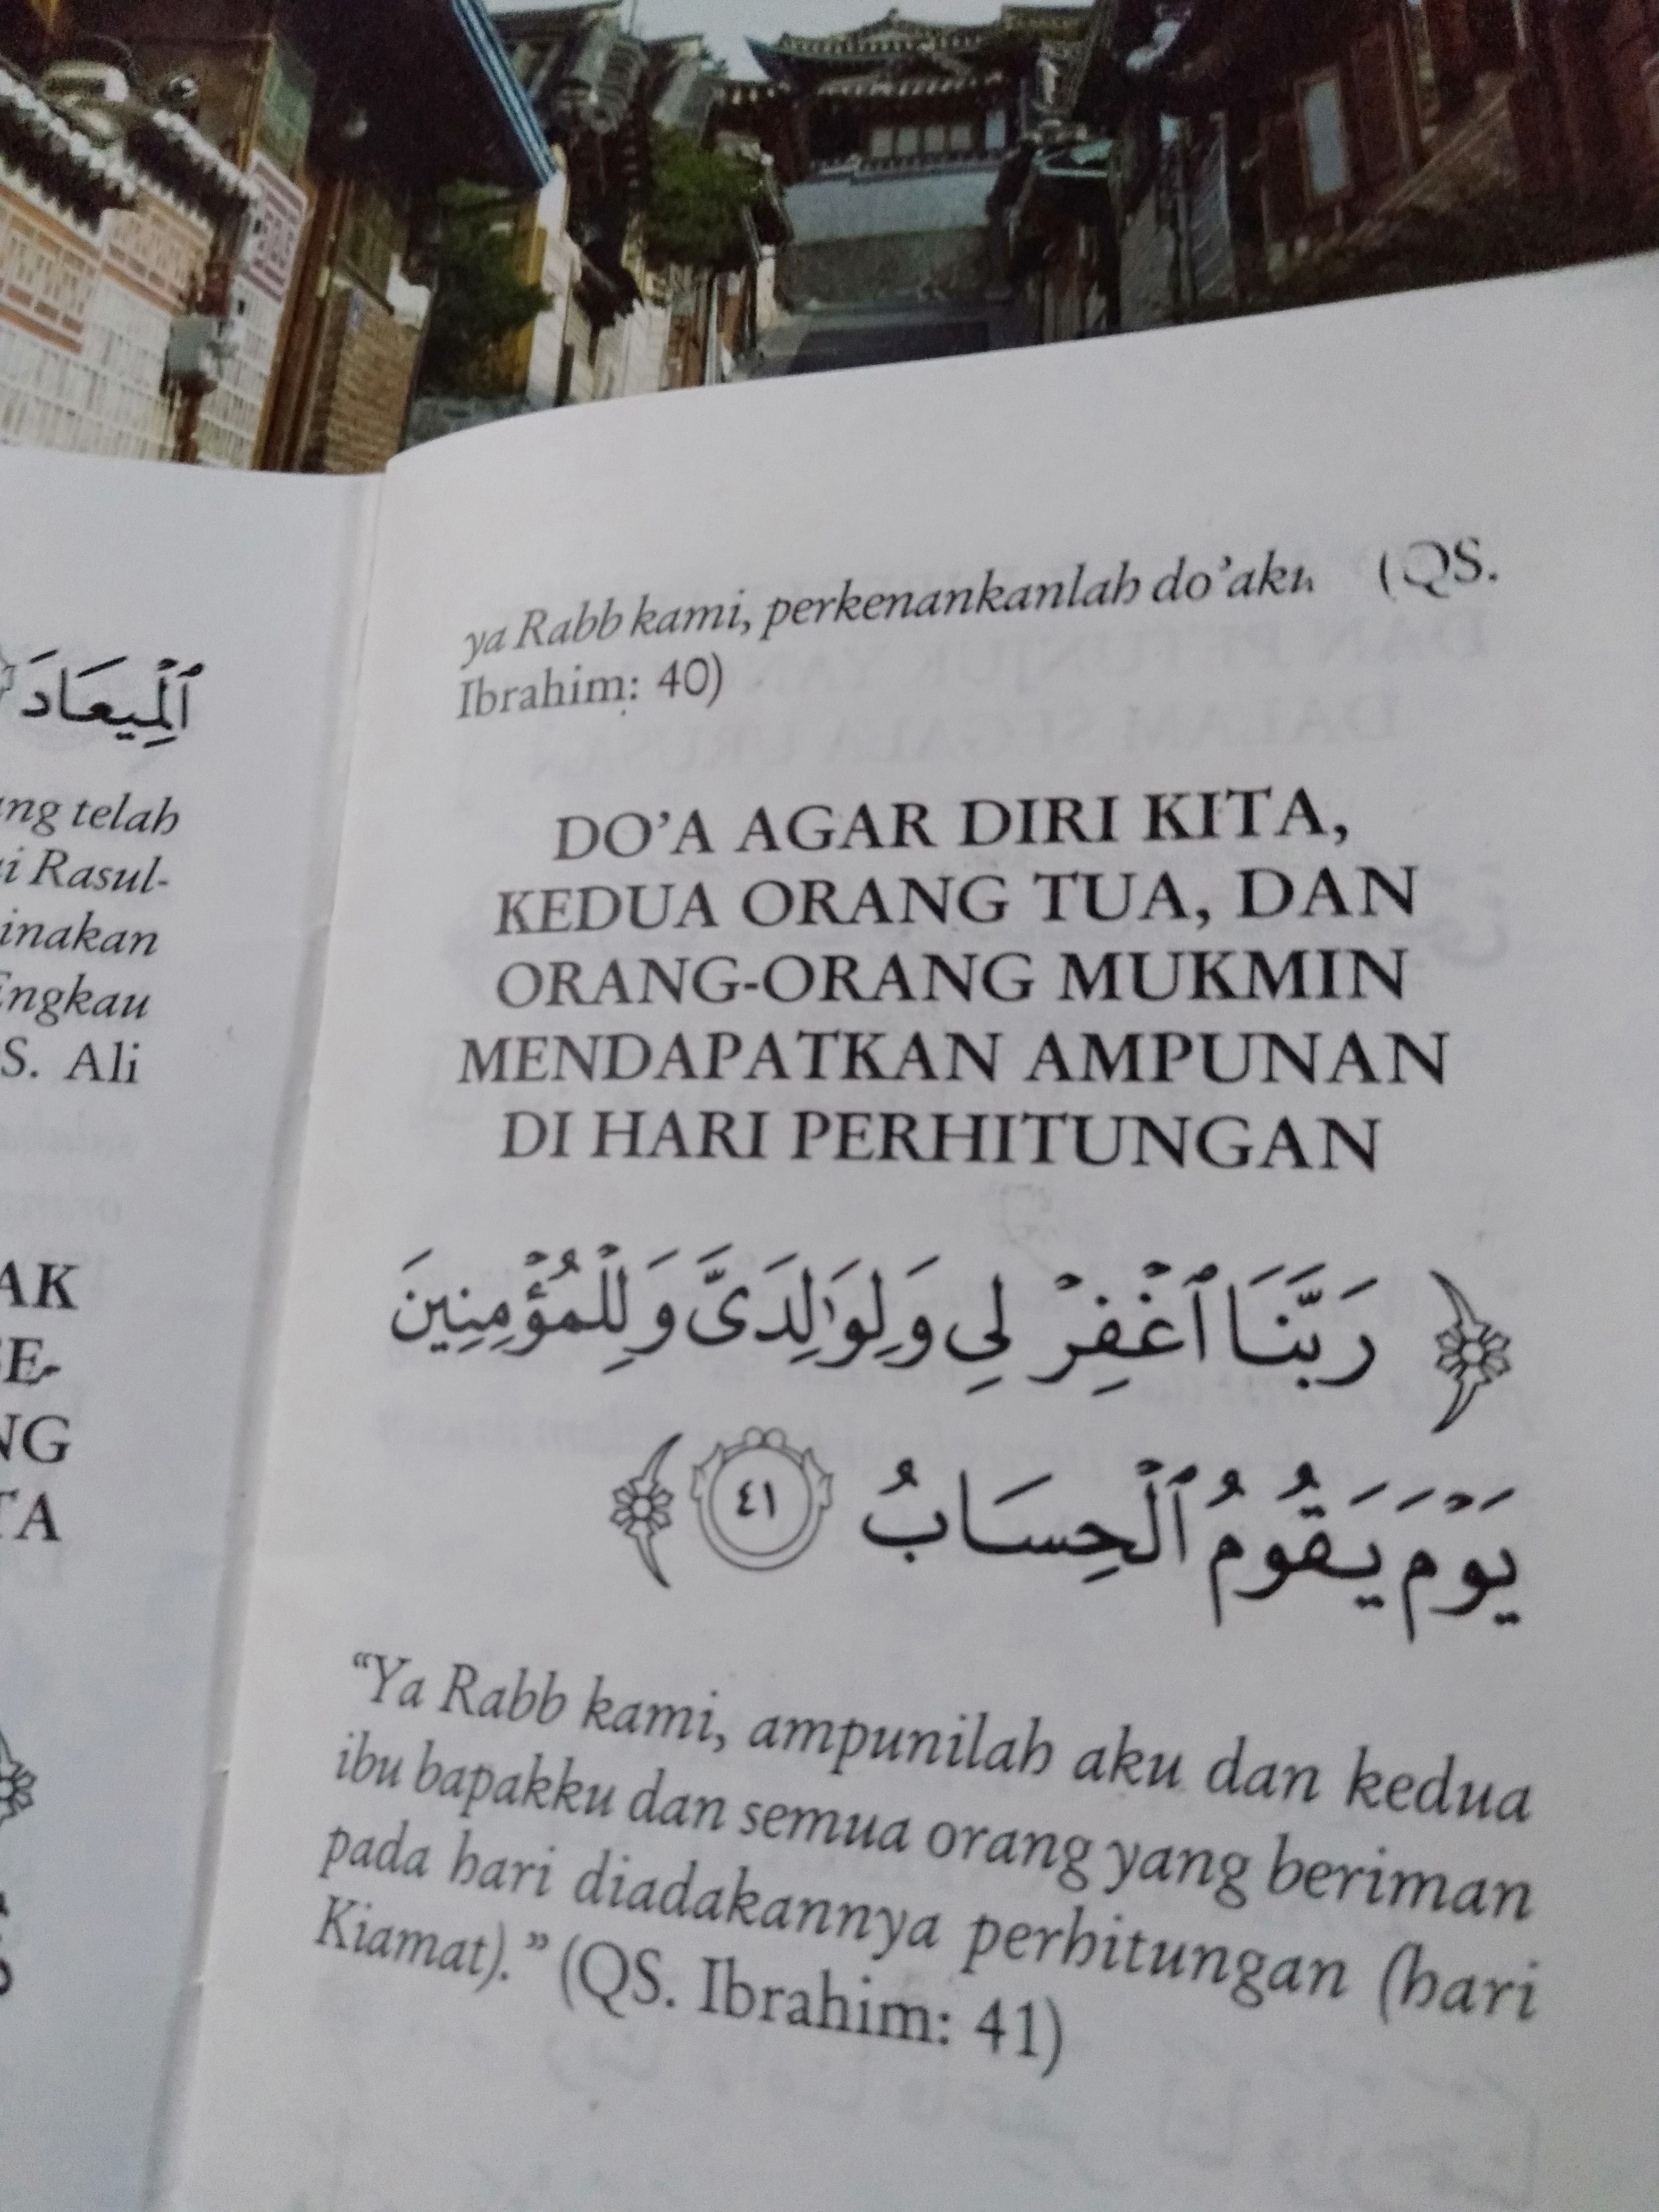 ٱلْمِيعَادَ
telah
Rasul-
Engkau
S. Ali
AK
NG
TA
ya Rabb kami, perkenankanlah do'aku (QS.
Ibrahim: 40)
DO'A AGAR DIRI KITA,
KEDUA ORANG TUA, DAN
ORANG-ORANG MUKMIN
MENDAPATKAN AMPUNAN
DI HARI PERHITUNGAN
رَبَّنَا ٱغْفِرْ لِي وَلِوَٰلِدَىَّ وَلِلْمُؤْمِنِينَ
يَوْمَ يَقُومُ ٱلْحِسَابُ ٤١
“Ya Rabb kami, ampunilah aku dan kedua
ibu bapakku dan semua orang yang beriman
pada hari diadakannya perhitungan (hari
Kiamat).” (QS. Ibrahim: 41)